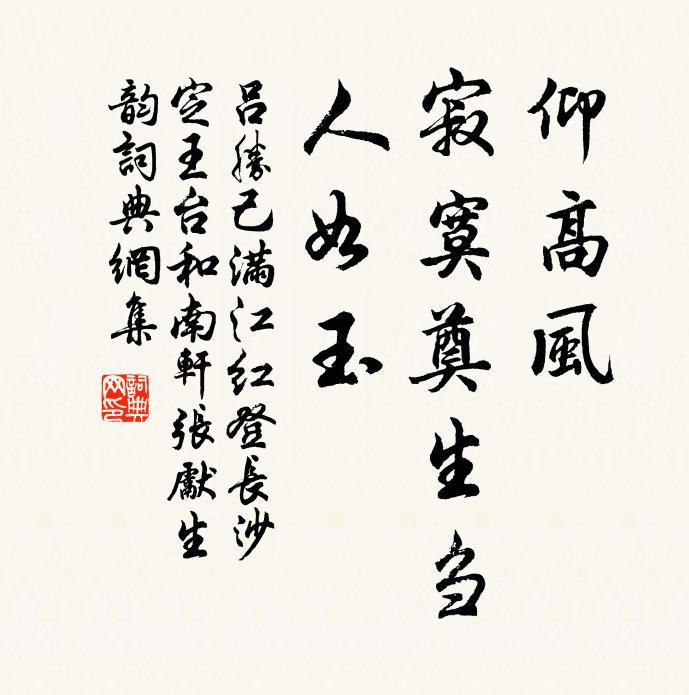 仰高風
寂寞奠生刍
人如玉
吕勝己滿江红登長沙
定王台和南軒張獻生
韵詞典網集
詞典
网印